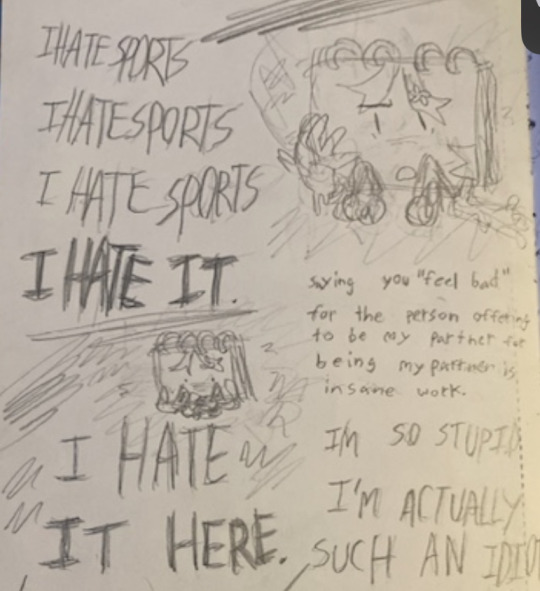 I HATE SPORTS
I HATE SPORTS
I HATE SPORTS
I HATE IT.
I HATE
IT HERE.
saying you "feel bad"
for the person offering
to be my partner for
being my partner is
insane work.
I'M SO STUPID
I'M ACTUALLY
SUCH AN IDIOT